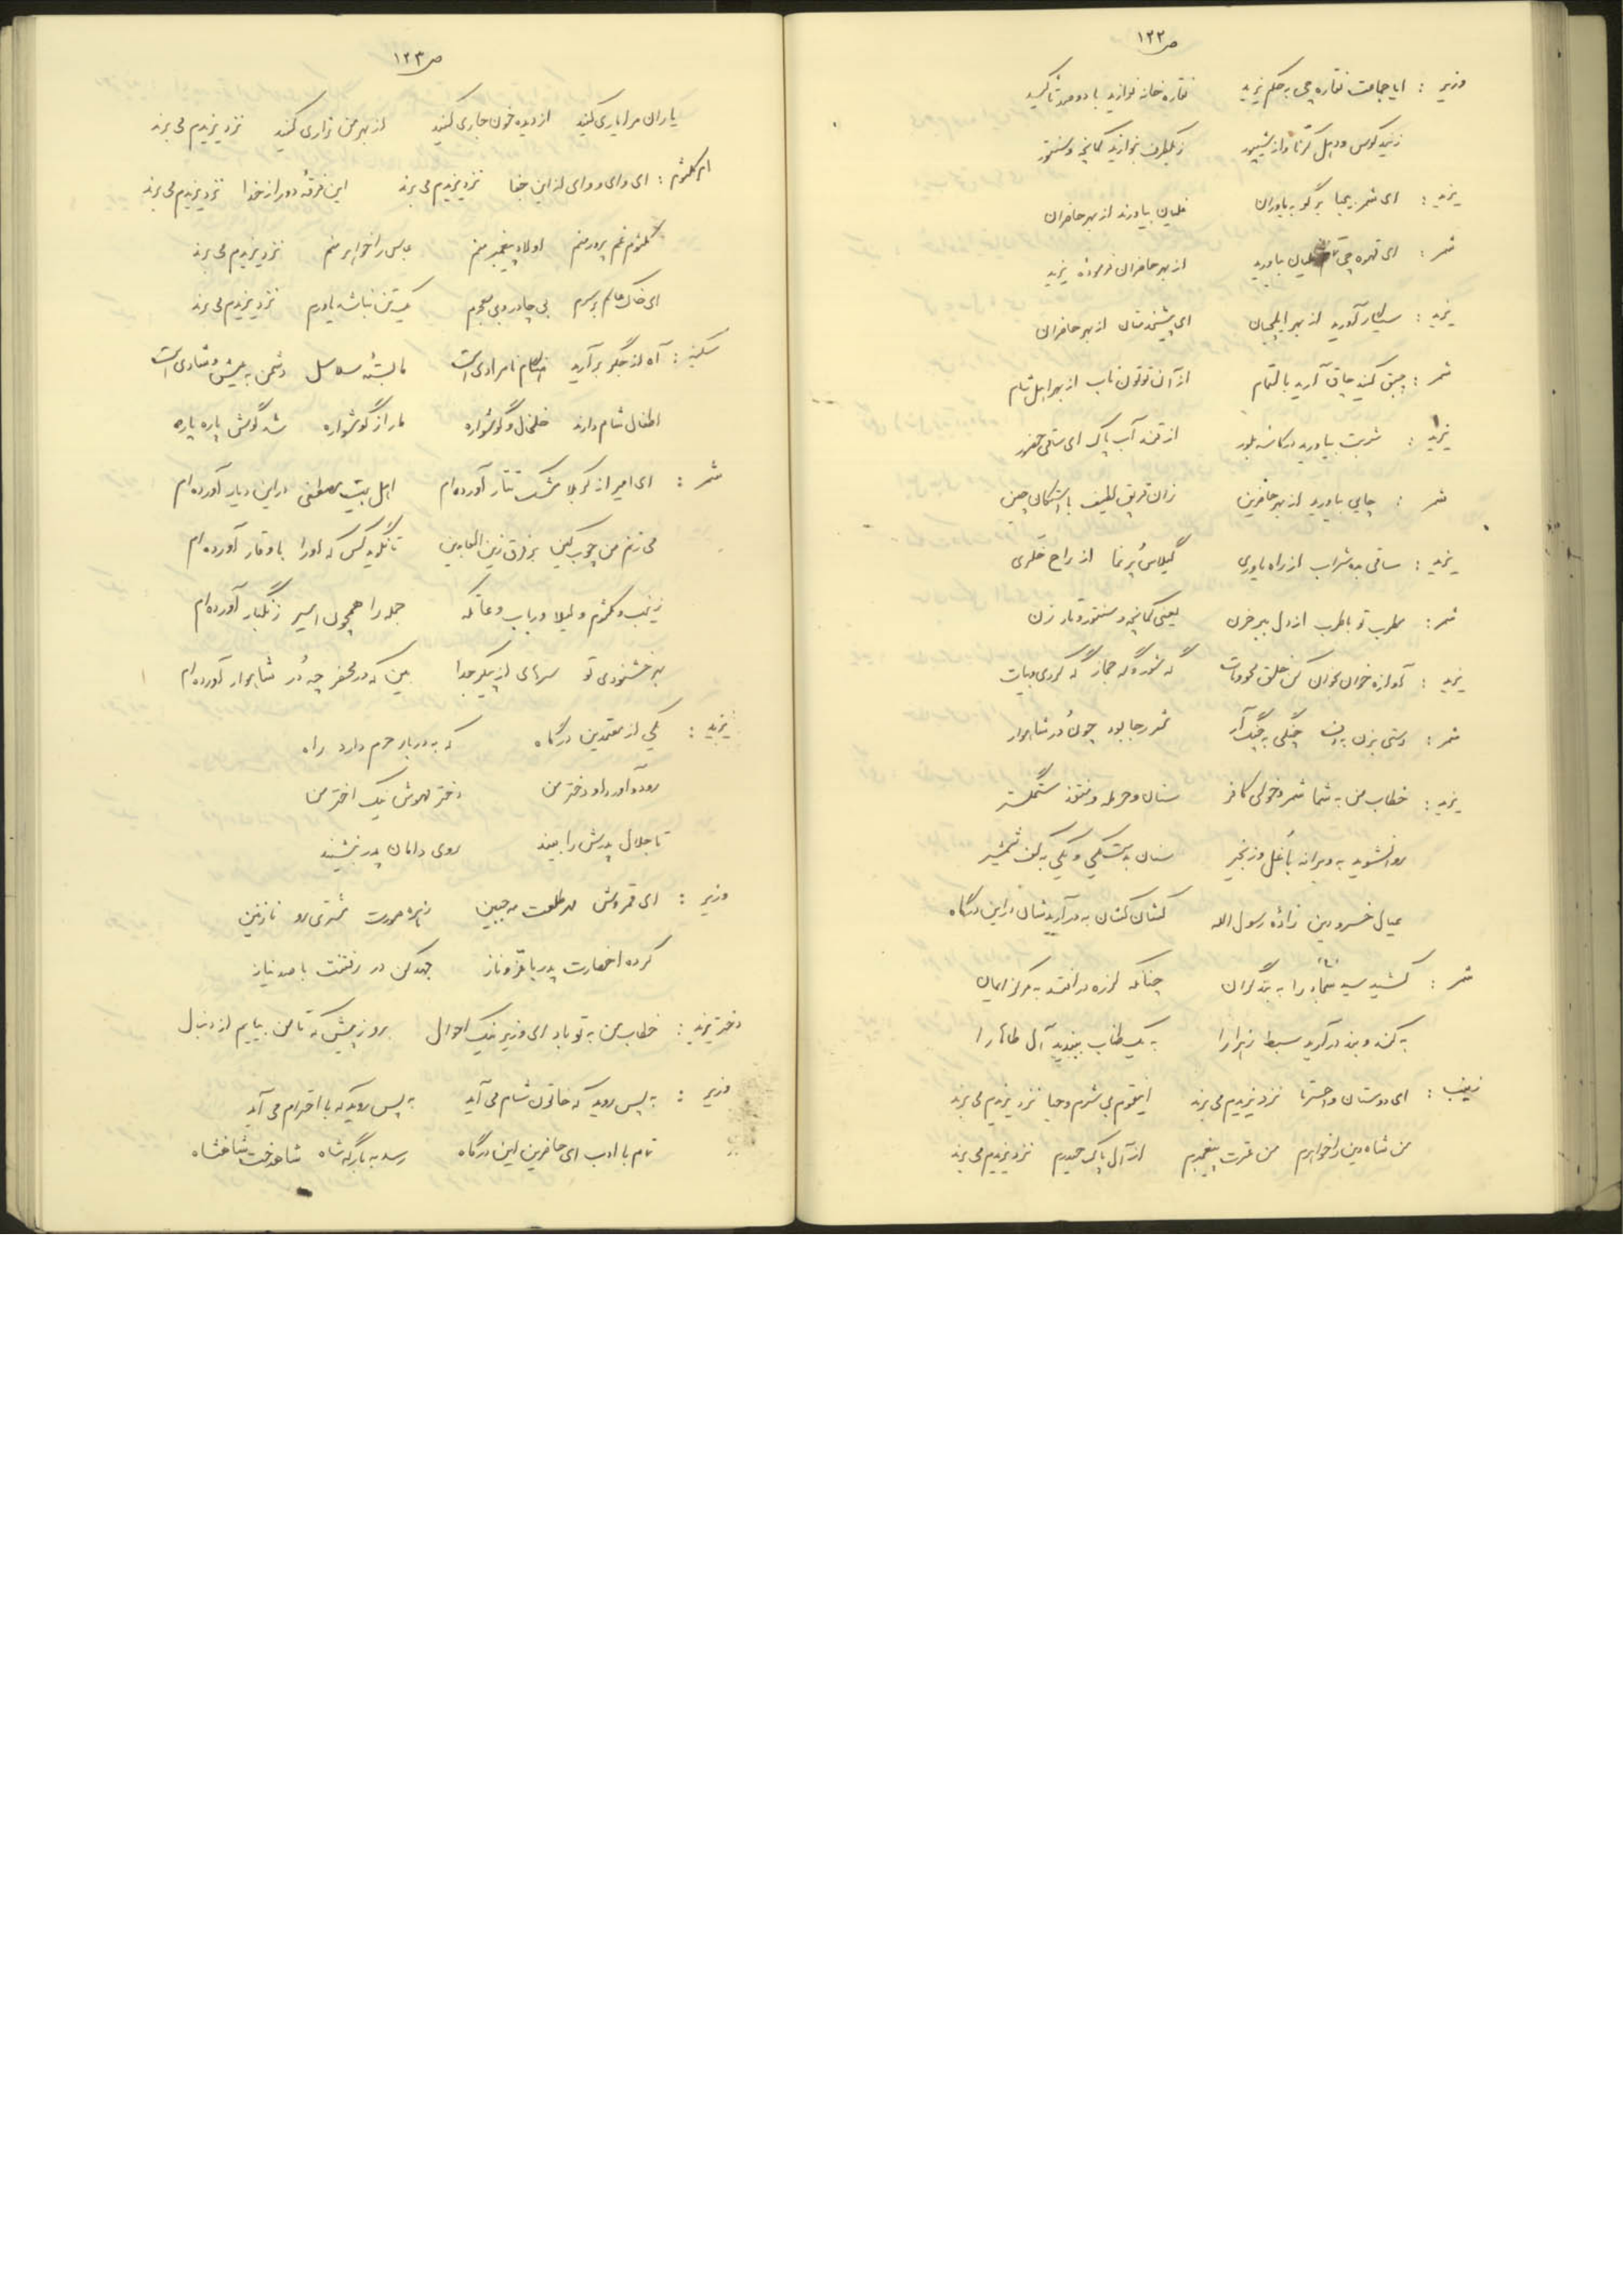 ص ۱۲۲
وزیر : ایا جماعت نقاره چی به حکم یزید نقاره خانه نوازید با دو صد تاکید
زنید کوس و دهل کرنا و از شیپور زیکطرف بنوازید کمانچه و سنتور
یزید : ای شمر بیحیا برگو به یاوران غلیان بیاورند از بهر حاضران
شمر : ای قهوه چی غلیان بیاورید از بهر حاضران فرموده یزید
یزید : سیگار آورید از بهر ایلچیان ای پیشخدمتان از بهر حاضران
شمر : چپق کنید چاق آرید بالتمام از آن توتون ناب از بهر اهل شام
یزید : شربت بیاورید در کاسه بلور از قند آب پاک ای ساقی حضور
شمر : چایی بیاورید از بهر حاضرین زان قوری لطیف با استکان چین
یزید : ساقی بده شراب از راه یاوری گیلاس پر نما از راح خلری
شمر : مطرب تو با طرب از دل ببر حزن یعنی کمانچه و سنتور و تار زن
یزید : آوازه خوان بخوان کن خلق محو و مات گه شور و گه حجاز گه کردی و بیات
شمر : دستی بزن به دف چنگی به چنگ آر تمور جا بود چون در شاهوار
یزید : خطاب من به شما شمر و خولی کافر سنان و حرمله و منقذ ستمگستر
روان شوید به ویرانه با غل و زنجیر سنان به دست یکی و یکی به کف شمشیر
عیال خسرو دین زاده رسول الله کشان کشان به در آریدشان در این درگاه
شمر : کشید سید سجاد را به بند گران چنانکه لرزه در افتد به مرکز ایمان
به کند و بند درآرید سبط زهرا را به یک طناب ببندید آل طاها را
زینب : ای دوستان واحسرتا نزد یزیدم می برند اینقوم بی شرم و حیا نزد یزیدم می برند
من شاه دین را خواهرم من عترت پیغمبرم از آل پاک حیدرم نزد یزیدم می برند
ص ۱۲۳
یاران مرا یاری کنید از دیده خون جاری کنید از بهر من زاری کنید نزد یزیدم می برند
ام کلثوم : ای وای و وای از این جفا نزد یزیدم می برند این فرقه دور از خدا نزد یزیدم می برند
کلثوم غم پرور منم اولاد پیغمبر منم عباس را خواهر منم نزد یزیدم می برند
ای خاک عالم بر سرم بی چادر و بی معجرم یک تن نباشد یاورم نزد یزیدم می برند
سکینه : آه از جگر برآرید هنگام نامرادی است ما بسته سلاسل دشمن به عیش و شادی است
اطفال شام دارند خلخال و گوشواره ما را ز گوشواره شد گوش پاره پاره
شمر : ای امیر از کربلا مشک تتار آورده ام اهل بیت مصطفی در این دیار آورده ام
می زنم من چوب کین بر فرق زین العابدین تا نگوید کس که او را با وقار آورده ام
زینب و کلثوم و لیلا و رباب و عاتکه جمله را همچون اسیر زنگبار آورده ام
بهر خشنودی تو سرهای از پیکر جدا بین که در محضر چه در شاهوار آورده ام
یزید : یکی از معتمدین درگاه که به دربار حرم دارد راه
رود و آورد او دختر من دختر مهوش نیک اختر من
تا جلال پدرش را بیند روی دامان پدر بنشیند
وزیر : ای قمروش مه طلعت مه جبین زهره صورت مشتری رو نازنین
کرده احضارت پدر با عز و ناز جهد کن در رفتنت با صد نیاز
دختر یزید : خطاب من به تو باد ای وزیر نیک احوال برو ز پیش که تا من بیایم از دنبال
وزیر : به پس روید که خاتون شام می آید به پس روید که با احترام می آید
تمام با ادب ای حاضرین این درگاه رسد به بارگه شاه شاهدخت شاهنشاه